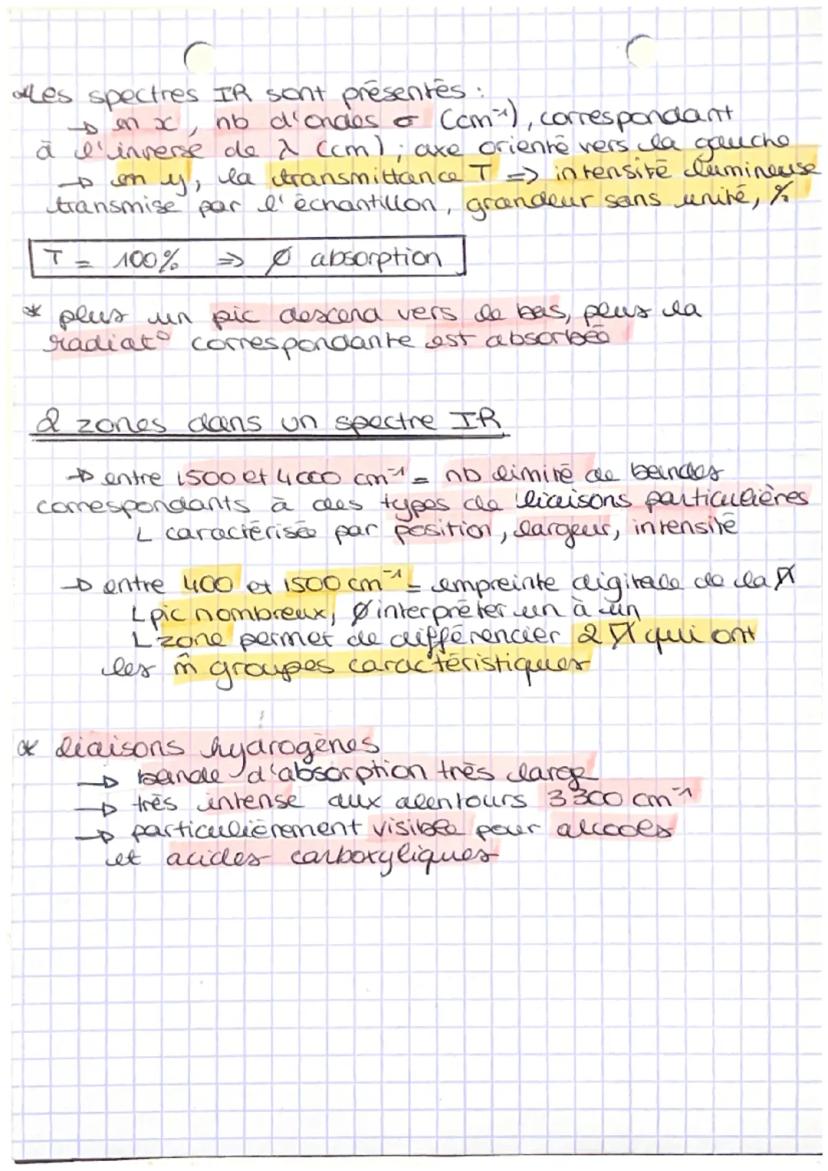 * Les spectres IR sont présentés :
→ en x, nb d'ondes σ (cm⁻¹), correspondant
à l'inverse de λ (cm) ; axe orienté vers la gauche
→ en y, la transmittance T => intensité lumineuse
transmise par l'échantillon, grandeur sans unité, %
T = 100% => Ø absorption
* plus un pic descend vers le bas, plus la
radiat° correspondante est absorbée
2 zones dans un spectre IR
→ entre 1500 et 4000 cm⁻¹ = nb limité de bandes
correspondants à des types de liaisons particulières
L caractérisée par position, largeur, intensité
→ entre 400 et 1500 cm⁻¹ = empreinte digitale de la
L pic nombreux, Ø interpréter un à un
L zone permet de différencier 2 qui ont
les m̂ groupes caractéristiques
* liaisons hydrogènes
→ bande d'absorption très large
→ très intense aux alentours 3300 cm⁻¹
→ particulièrement visible pour alcools
et acides carboxyliques